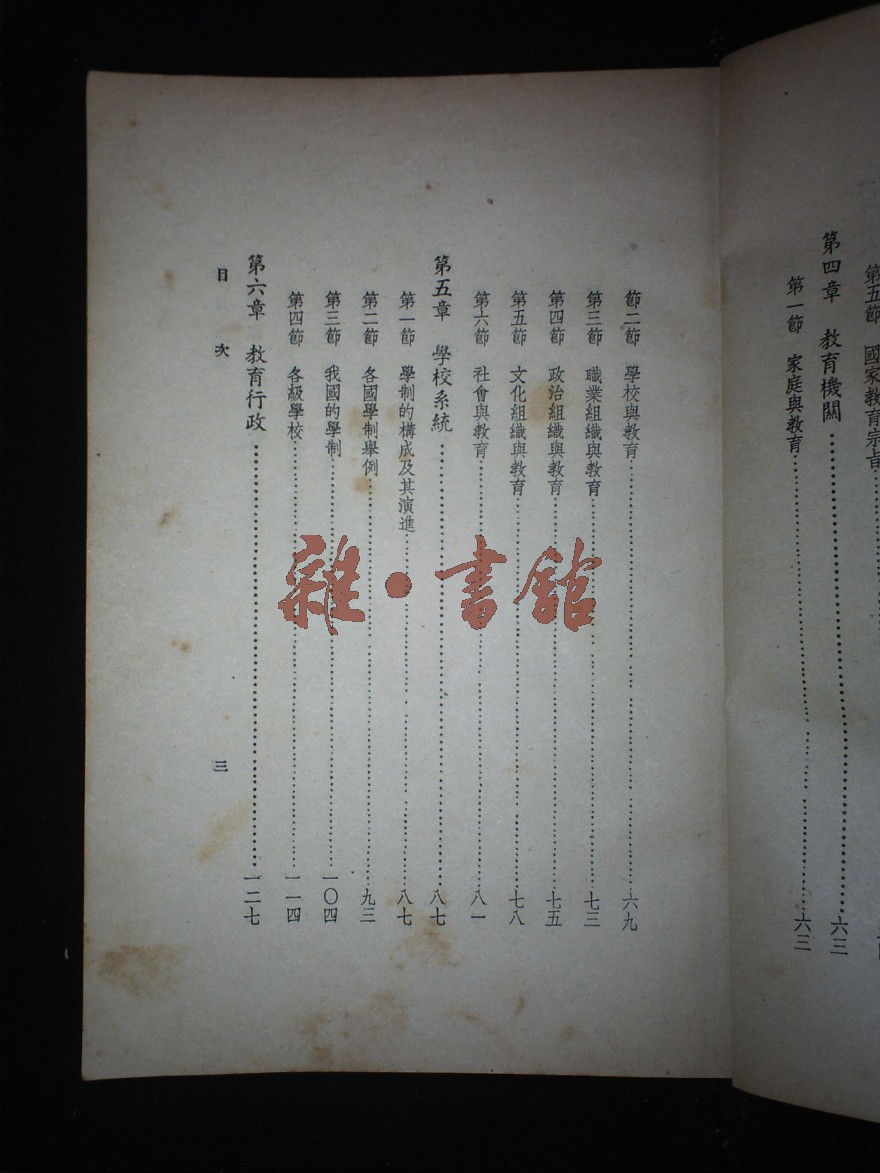 第五節　國家教育宗旨
第四章　教育機關……六三
第一節　家庭與教育……六三
節二節　學校與教育……六九
第三節　職業組織與教育……七三
第四節　政治組織與教育……七五
第五節　文化組織與教育……七八
第六節　社會與教育……八一
第五章　學校系統……八七
第一節　學制的構成及其演進……八七
第二節　各國學制舉例……九三
第三節　我國的學制……一〇四
第四節　各級學校……一一四
第六章　教育行政……一二七
目次　三
雜·書館